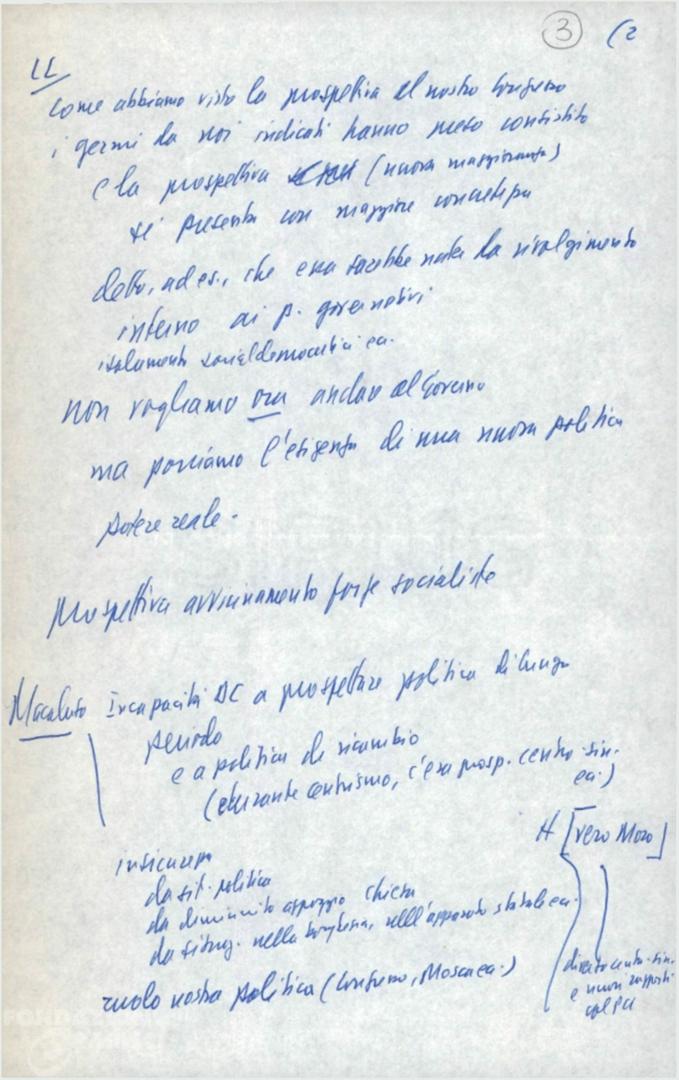 3 (2
LL
Come abbiamo visto la prospettiva al nostro Congresso
i germi da noi indicati hanno preso consistito
e la prospettiva (nuova maggioranza)
si presenta con maggiore concretezza
detto, ad es., che essa sarebbe nata da rivolgimento
interno ai p. governativi
isolamento socialdemocratici ec.
non vogliamo ora andare al Governo
ma poniamo l'esigenza di una nuova politica
potere reale.
Prospettiva avvicinamento forze socialiste
Macaluso Incapacità DC a prospettare politica di lungo
periodo
e a politica di ricambio
(durante centrismo, c'era prosp. centro-sin.
ec.)
[vero Moro]
insicurezza
da sit. politica
da diminuito appoggio Chiesa
da situaz. nella borghesia, nell'apparato statale ec.
centro-sin.
e nuovi rapporti
col PCI
ruolo nostra politica (Congresso, Mosca ec.)
FONDAZIONE